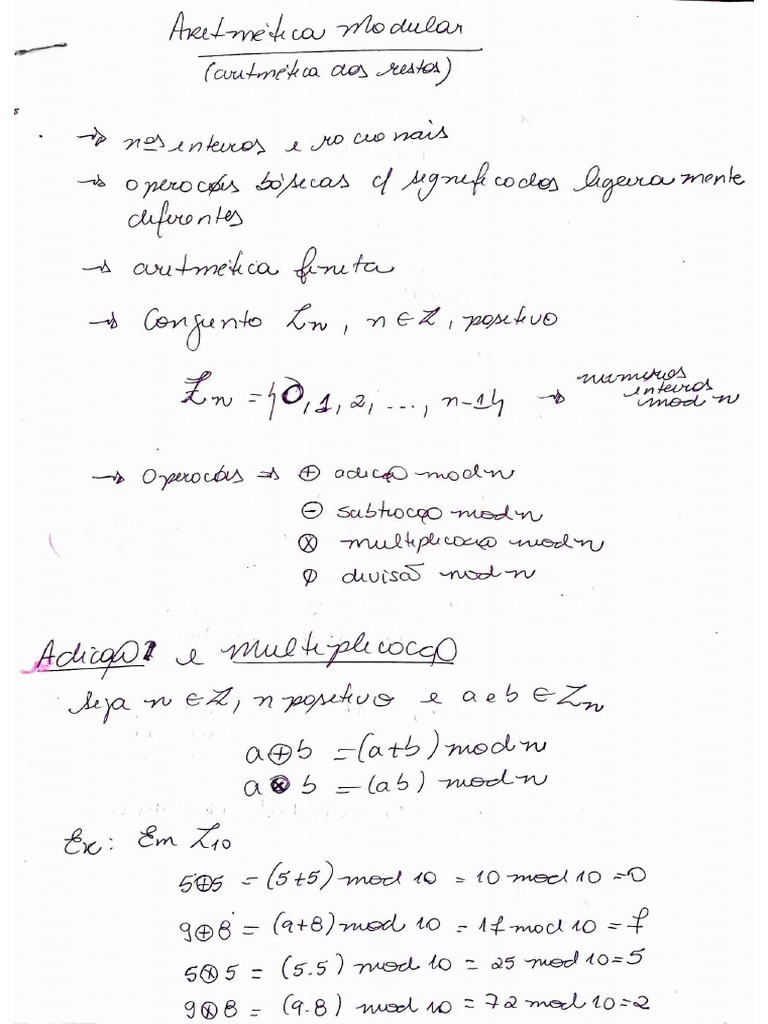 Aritmética Modular
(aritmética dos restos)
→ nos inteiros e racionais
→ operações básicas c/ significados ligeiramente
diferentes
→ aritmética finita
→ Conjunto Zn, n ∈ Z, positivo
Zn = {0, 1, 2, ..., n-1} → números
inteiros
mod n
→ Operações ⇒ ⊕ adição mod n
⊖ subtração mod n
⊗ multiplicação mod n
⊘ divisão mod n
Adição e multiplicação
Seja n ∈ Z, n positivo e a e b ∈ Zn
a ⊕ b = (a+b) mod n
a ⊗ b = (ab) mod n
Ex: Em Z10
5⊕5 = (5+5) mod 10 = 10 mod 10 = 0
9⊕8 = (9+8) mod 10 = 17 mod 10 = 7
5⊗5 = (5.5) mod 10 = 25 mod 10 = 5
9⊗8 = (9.8) mod 10 = 72 mod 10 = 2